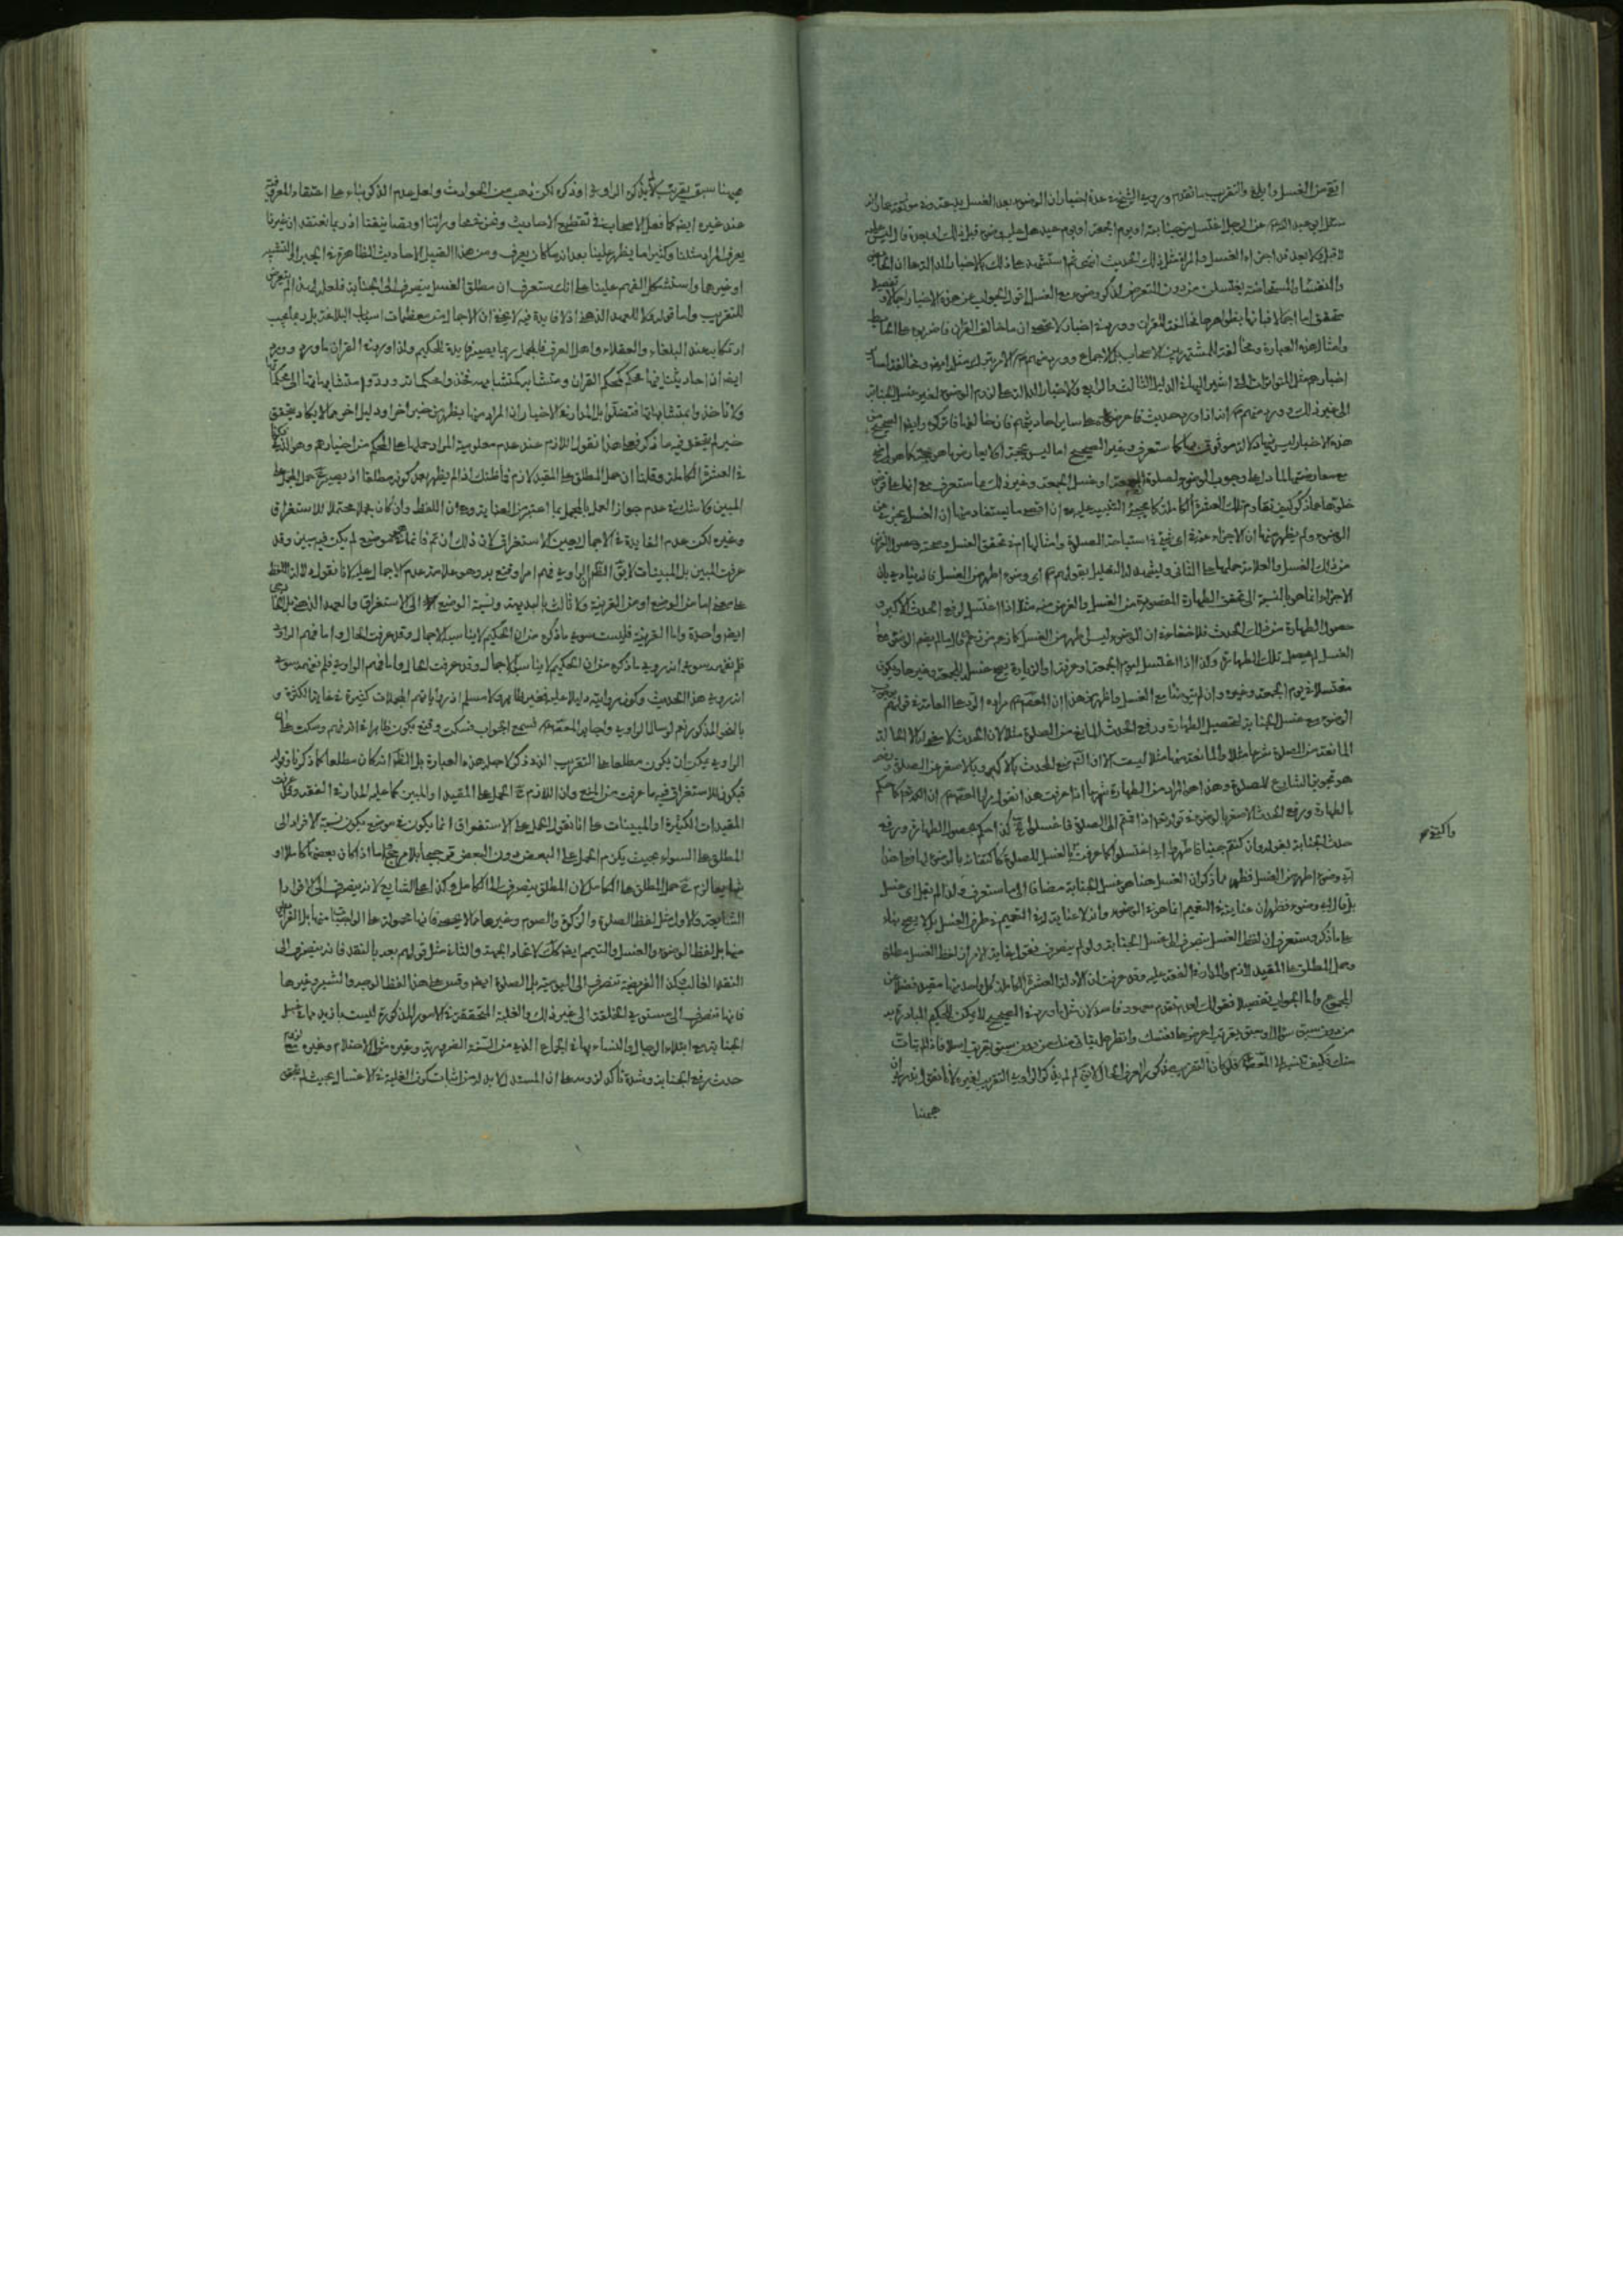 ايّ من الغسل وابلغ والتقريب ما تقدم وروى الشيخ عدة اخبار ان الوضوء بعد الغسل بدعة وفى موثقة عمار انه
سئل ابى عبد الله عن الرجل اغتسل من جنابته او يوم الجمعة او يوم عيد هل عليه وضوء قبل ذلك او بعده فقال ليس عليه
لا قبل ولا بعد قد اجزاه الغسل والمراة مثل ذلك الحديث انتهى ثم استشهد على ذلك بالاخبار الدالة على ان الحائض
والنفساء والمستحاضة يغتسلن من دون التعرض لذكر وضوء مع الغسل اقول الجواب عن هذه الاخبار اجمالا وتفصيلا
متحقق اما اجمالا فبانها بظواهرها مخالفة القران وورد فى اخبار لا تحصى ان ما خالف القران فاضربوه على الحائط
وامثال هذه العبارة ومخالفة للمشتهر بين الاصحاب بل الاجماع وورد منهم الامر بترك مثله ايضا ومخالفة لساير
اخبارهم مثل المتواترات التى اشير اليها فى الدليل الثالث والرابع والاخبار الدالة على لزوم الوضوء لغير غسل الجنابة
الى غير ذلك وورد منهم انه اذا ورد حديث فاعرضوه على ساير احاديثهم فان خالفها فاتركوه وايضا الصحيح من
هذه الاخبار ليس فيها دلالة موثوق بها كما ستعرف وغير الصحيح اما ليس بحجة او لا يعارض ما هو حجة كما هو الحق
مع معارضتها لما دل على وجوب الوضوء لصلوة الجمعة او غسل الجمعة وغير ذلك مما ستعرف مع انها على فرض
خلوها عما ذكر كيف تقاوم تلك العشرة الكاملة كما يجىء التنبيه عليه مع ان اقصى ما يستفاد منها ان الغسل يجزى عن
الوضوء ولم يظهر منها ان الاجزاء عنه اى شىء فى استباحة الصلوة وامثالها ام فى تحقق الغسل وصحته وحصول الغرض
من ذلك الغسل والعلامة حملها على الثانى ويشهد له التعليل بقولهم اى وضوء اطهر من الغسل فانه ينادى بان
الاجزاء انما هو بالنسبة الى تحقق الطهارة المقصودة من الغسل والغرض منه مثلا اذا اغتسل لرفع الحدث الاكبر و
حصول الطهارة من ذلك الحدث فلا خفاء فى ان الوضوء ليس اطهر من الغسل كما زعم من زعم انه ما لم ينضم الوضوء مع
الغسل لم يحصل تلك الطهارة وكذا اذا اغتسل ليوم الجمعة او عرفة او الزيارة يصح غسل الجمعة وغيرها ويكون
مغتسلا فى يوم الجمعة وغيره وان لم يتوضا مع الغسل واظهر من هذا ان المعصوم مراده الرد على العامة فى قولهم بوجوب
الوضوء مع غسل الجنابة لتحصيل الطهارة ورفع الحدث المانع من الصلوة مثلا لان الحدث لا معنى له الا الحالة
المانعة من الصلوة شرعا مثلا والمانعة منها مثلا ليست الا ان الشرع منع المحدث بالاكبر وبالاصغر عن الصلوة ورفعه
هو تجويز الشارع للصلوة وهذا هو المراد من الطهارة شرعا اذا عرفت هذا نقول يرد المعصوم ان الله تعالى كما حكم
بالطهارة ورفع الحدث الاصغر بالوضوء فى قوله تعالى اذا قمتم الى الصلوة فاغسلوا كذا حكم بحصول الطهارة ورفع
حدث الجنابة بقوله وان كنتم جنبا فاطهروا اى اغتسلوا كما عرفت بالغسل للصلوة كاكتفائه بالوضوء لها فى هذا
اى وضوء اطهر من الغسل فظهر مما ذكر ان الغسل هنا هو غسل الجنابة مضافا الى ما ستعرف ولذا لم يقل اى غسل
بل قال اى وضوء فظهر ان عنايته فى التعميم انما هو فى الوضوء وانه لا عناية له فى التعميم فى طرف الغسل بل لا يصح بناء
على ما ذكر وستعرف ان لفظ الغسل ينصرف الى غسل الجنابة ولو لم ينصرف فنقول غاية الامر ان لفظ الغسل مطلق
وحمل المطلق على المقيد لازم والمدار فى الفقه عليه وقد عرفت ان الادلة العشرة الكاملة كل واحد منها مقيد فضلا عن
المجموع واما الجواب تفصيلا فنقول
من دون سبق سؤال او سبق تقريب اعرضوها على نفسك وانظر هل يتاتى منك من دون سبق تقريب اصلا فاذا لم يتات
منك فكيف تنسبه الى المعصوم فلو كان التقريب مذكورا لعرف الحال لا يقال لم لم يذكر الراوى التقريب لغيره لانا نقول
ههنا
واكتفى
ههنا سبق تقريب لم يذكره الراوى او ذكره لكن ذهب من الحوادث ولعل عدم الذكر بناء على اعتقاد المعروفية
عند غيره ايضا كما فعل الاصحاب فى تقطيع الاحاديث ونحن نتبعها وراينا او تصانيفنا اذ ربما نعتقد ان غيرنا
يعرف المراد مثلنا وكثيرا ما يظهر علينا بعد انه ما كان يعرف ومن هذا القبيل الاحاديث الظاهرة فى الجبر او التشبيه
او غيرهما واستشكل الفهم علينا على انك ستعرف ان مطلق الغسل ينصرف الى الجنابة فلعله لهذا لم يتعرض
للتقريب واما قوله فلا للعهد الذهنى اذ لا فايدة فيه لا يخفى ان الاجمال من معظمات اسباب البلاغة بل ربما يجب
ارتكابه عند البلغاء والعقلاء واهل العرف فالمجمل ربما يصير فايدة للحكيم ولذا ورد فى القران ما ورد وورد
ايضا ان احاديثنا فيها محكم كمحكم القران ومتشابه كمتشابهه فخذوا محكماته وردوا متشابهاتها الى محكماتها
ولا تاخذوا بمتشابهاتها فتضلوا بل المدار فى الاخبار ان المراد منها يظهر من خبر اخر او دليل اخر مما لا يكاد يتحقق
خبر لم يتحقق فيه ما ذكر فعلى هذا نقول اللازم عند عدم معلومية المراد حملها على المحكم من اخبارهم وهو الذى ذكرنا
فى العشرة الكاملة وقلنا ان حمل المطلق على المقيد لازم فما ظنك اذا لم يظهر بعد كونه مطلقا اذ يصير ح حمل المجمل على
المبين ولا شبهة فى عدم جواز العمل بالمجمل بما اعتبر من العناية ودعوى ان اللفظ وان كان مجملا محتملا للاستغراق
وغيره لكن عدم الفايدة فى الاجمال يعين الاستغراق لان ذلك ان تم فانما هو فى موضع لم يكن فيه مبين وقد
عرفت المبين بل المبينات لا يق الظاهر ان الراوى فهم امرا وقنع به وهو علامة عدم الاجمال عليه لانا نقول دلالة اللفظ
على معنى اما من الوضع او من القرينة ولا ثالث بالبديهة ونسبة الوضع الى الاستغراق والعهد الذهنى بل الخارجى
ايضا واحدة واما القرينة فليست سوى ما ذكره من ان الحكيم لا يناسبه الاجمال وقد عرفت الحال واما فهم الراوى
فلم نفهمه سوى انه روى ما ذكره من ان الحكيم لا يناسبه الاجمال وقد عرفت الحال واما فهم الراوى فلم نفهمه سوى
انه روى هذا الحديث وكون روايته دليلا على فهمه غير ظاهر ولا مسلم اذ رواياتهم المجملات كثيرة فى غاية الكثرة و
بالنحو المذكور نعم لو سال الراوى واجابه المعصوم فسمع الجواب فسكت وقنع يكون ظاهرا فى انه فهم وسكت على ان
الراوى يمكن ان يكون مطلعا على التقريب الذى ذكر لاجله هذه العبارة بل الظاهر انه كان مطلعا كما ذكرنا وقوله
فيكون للاستغراق فيه ما عرفت من المنع وان اللازم ح الحمل على المقيد او المبين كما عليه المدار فى الفقه وقد عرفت
المقيدات الكثيرة او المبينات على انا نقول الحمل على الاستغراق انما يكون فى موضع يكون نسبة الافراد الى
المطلق على السواء بحيث يلزم الحمل على البعض دون البعض ترجيحا بلا مرجح اما اذا كان بعضها كاملا او
شايعا لزم ح حمل المطلق على الكامل لان المطلق ينصرف الى الكامل وكذا على الشايع لانه ينصرف الى الافراد
الشايعة والاول مثل لفظ الصلوة والزكوة والصوم وغيرها مما لا يحصى فانها محمولة على الواجبات منها بل الفرايض
منها بل لفظ الوضوء والغسل والتيمم ايضا كك لاتحاد الجهة والثانى مثل قولهم بعه بالنقد فانه ينصرف الى
النقد الغالب وكذا الفريضة تنصرف الى اليومية بل الصلوة ايضا وقس على هذا لفظ الوجه والشبر وغيرها
فانها تنصرف الى مستوى الخلقة الى غير ذلك والغلبة المتحققة فى الامور المذكورة ليست بازيد مما فى غسل
الجنابة مع ابتلاء الرجال والنساء بها فى الجماع الذى من السنة الضرورية وغيره مثل الاحتلام وغيره مع لزوم
حدث رفع الجنابة وشدة تاكد لزومه على ان المستدل لا بد له من اثبات كون الغلبة فى الاغسال بحيث لم يتحقق